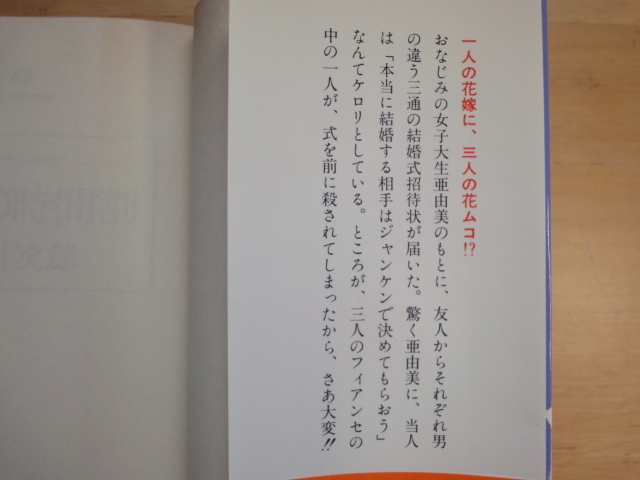 一人の花嫁に、三人の花ムコ!?
おなじみの女子大生亜由美のもとに、友人からそれぞれ男
の違う三通の結婚式招待状が届いた。驚く亜由美に、当人
は「本当に結婚する相手はジャンケンで決めてもらおう」
なんてケロリとしている。ところが、三人のフィアンセの
中の一人が、式を前に殺されてしまったから、さあ大変!!
の時間割
川次郎